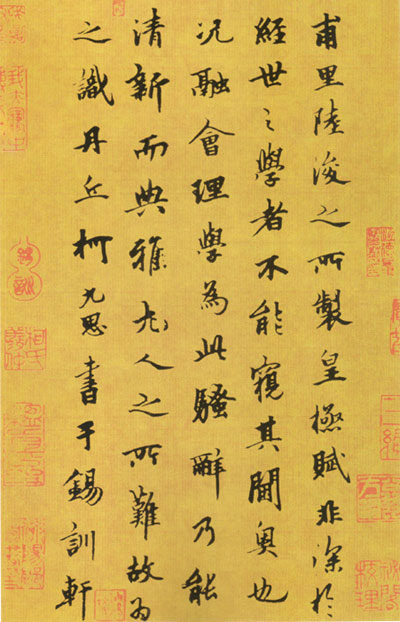 甫里陸浚之所製皇極賦非深於
經世之學者不能窺其閫奧也
况融會理學為此騷辭乃能
清新而典雅尤人之所難故為
之識丹丘柯九思書于錫訓軒